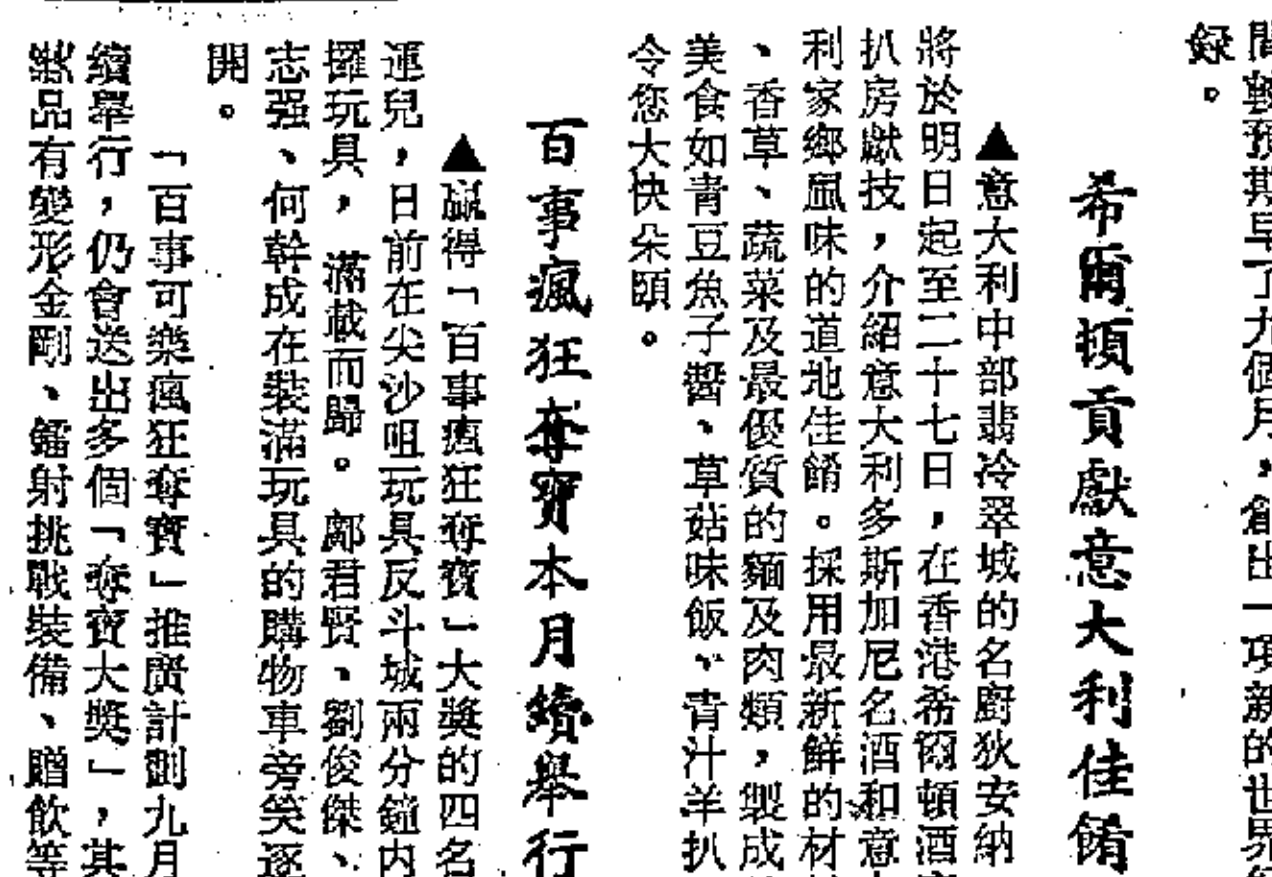 間數預期早了九個月，創出一項新的世界
録。
希爾頓貢獻意大利佳餚
▲意大利中部翡冷翠城的名廚狄安納
將於明日起至二十七日，在香港希爾頓酒
扒房獻技，介紹意大利多斯加尼名酒和意
利家鄉風味的道地佳餚。採用最新鮮的材
、香草、蔬菜及最優質的麵及肉類，製成
美食如青豆魚子醬、草菇味飯、青汁羊扒
令您大快朵頤。
百事瘋狂奪寶本月續舉行
▲贏得「百事瘋狂奪寶」大獎的四名
運兒，日前在尖沙咀玩具反斗城兩分鐘内
攞玩具，滿載而歸。鄺君賢、劉俊傑、
志强、何幹成在裝滿玩具的購物車旁笑逐
開。
「百事可樂瘋狂奪寶」推廣計劃九月
續舉行，仍會送出多個「奪寶大獎」，其
獎品有變形金剛、鐳射挑戰裝備、贈飲等